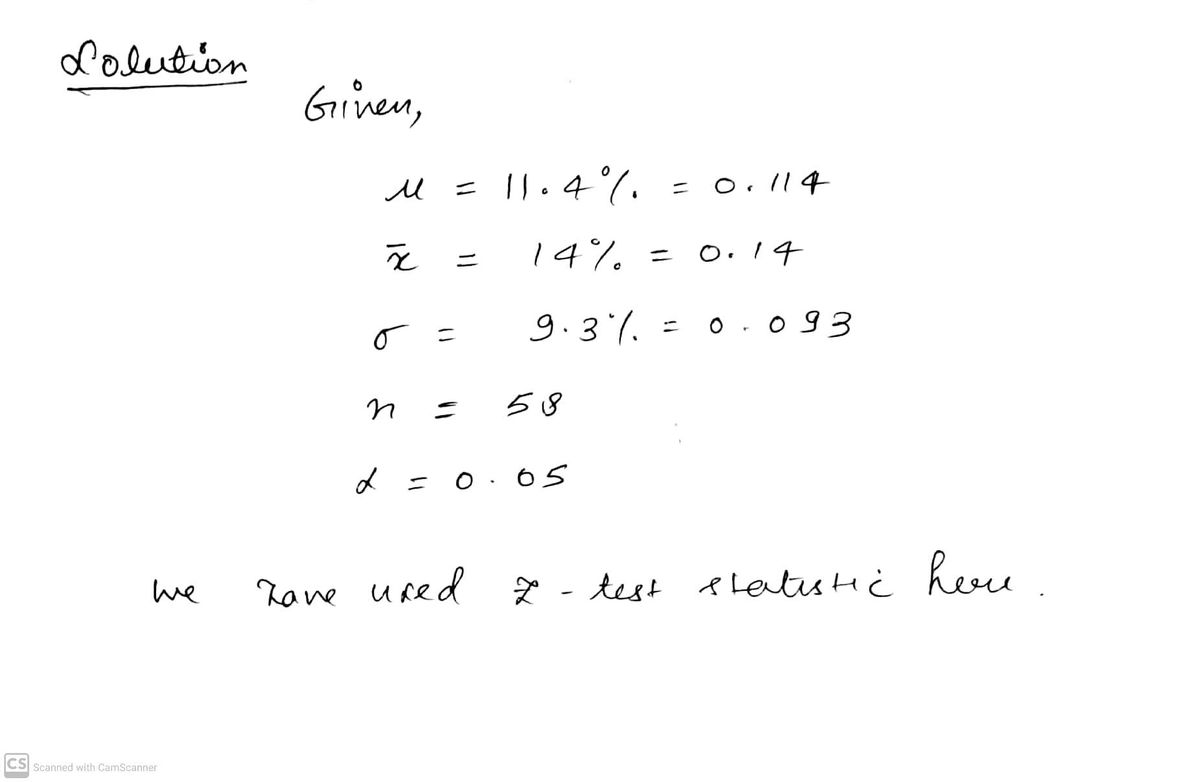 Solution
Given,
μ = 11.4% = 0.114
x̄ = 14% = 0.14
σ = 9.3% = 0.093
n = 58
α = 0.05
we have used z - test statistic here.
CS Scanned with CamScanner